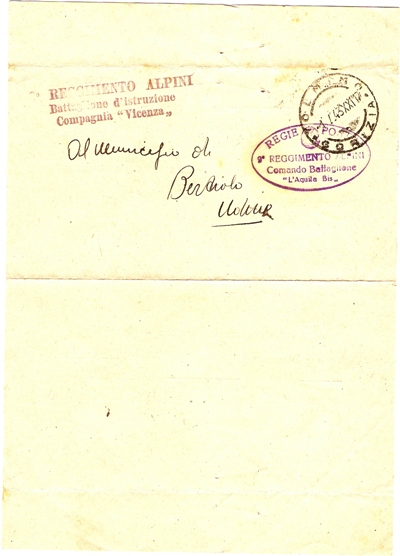 9° REGGIMENTO ALPINI
Battaglione d'Istruzione
Compagnia "Vicenza"
REGIE POSTE
9° REGGIMENTO ALPINI
Comando Battaglione
"L'Aquila Bis"
Al Municipio di
Bertiolo
Udine